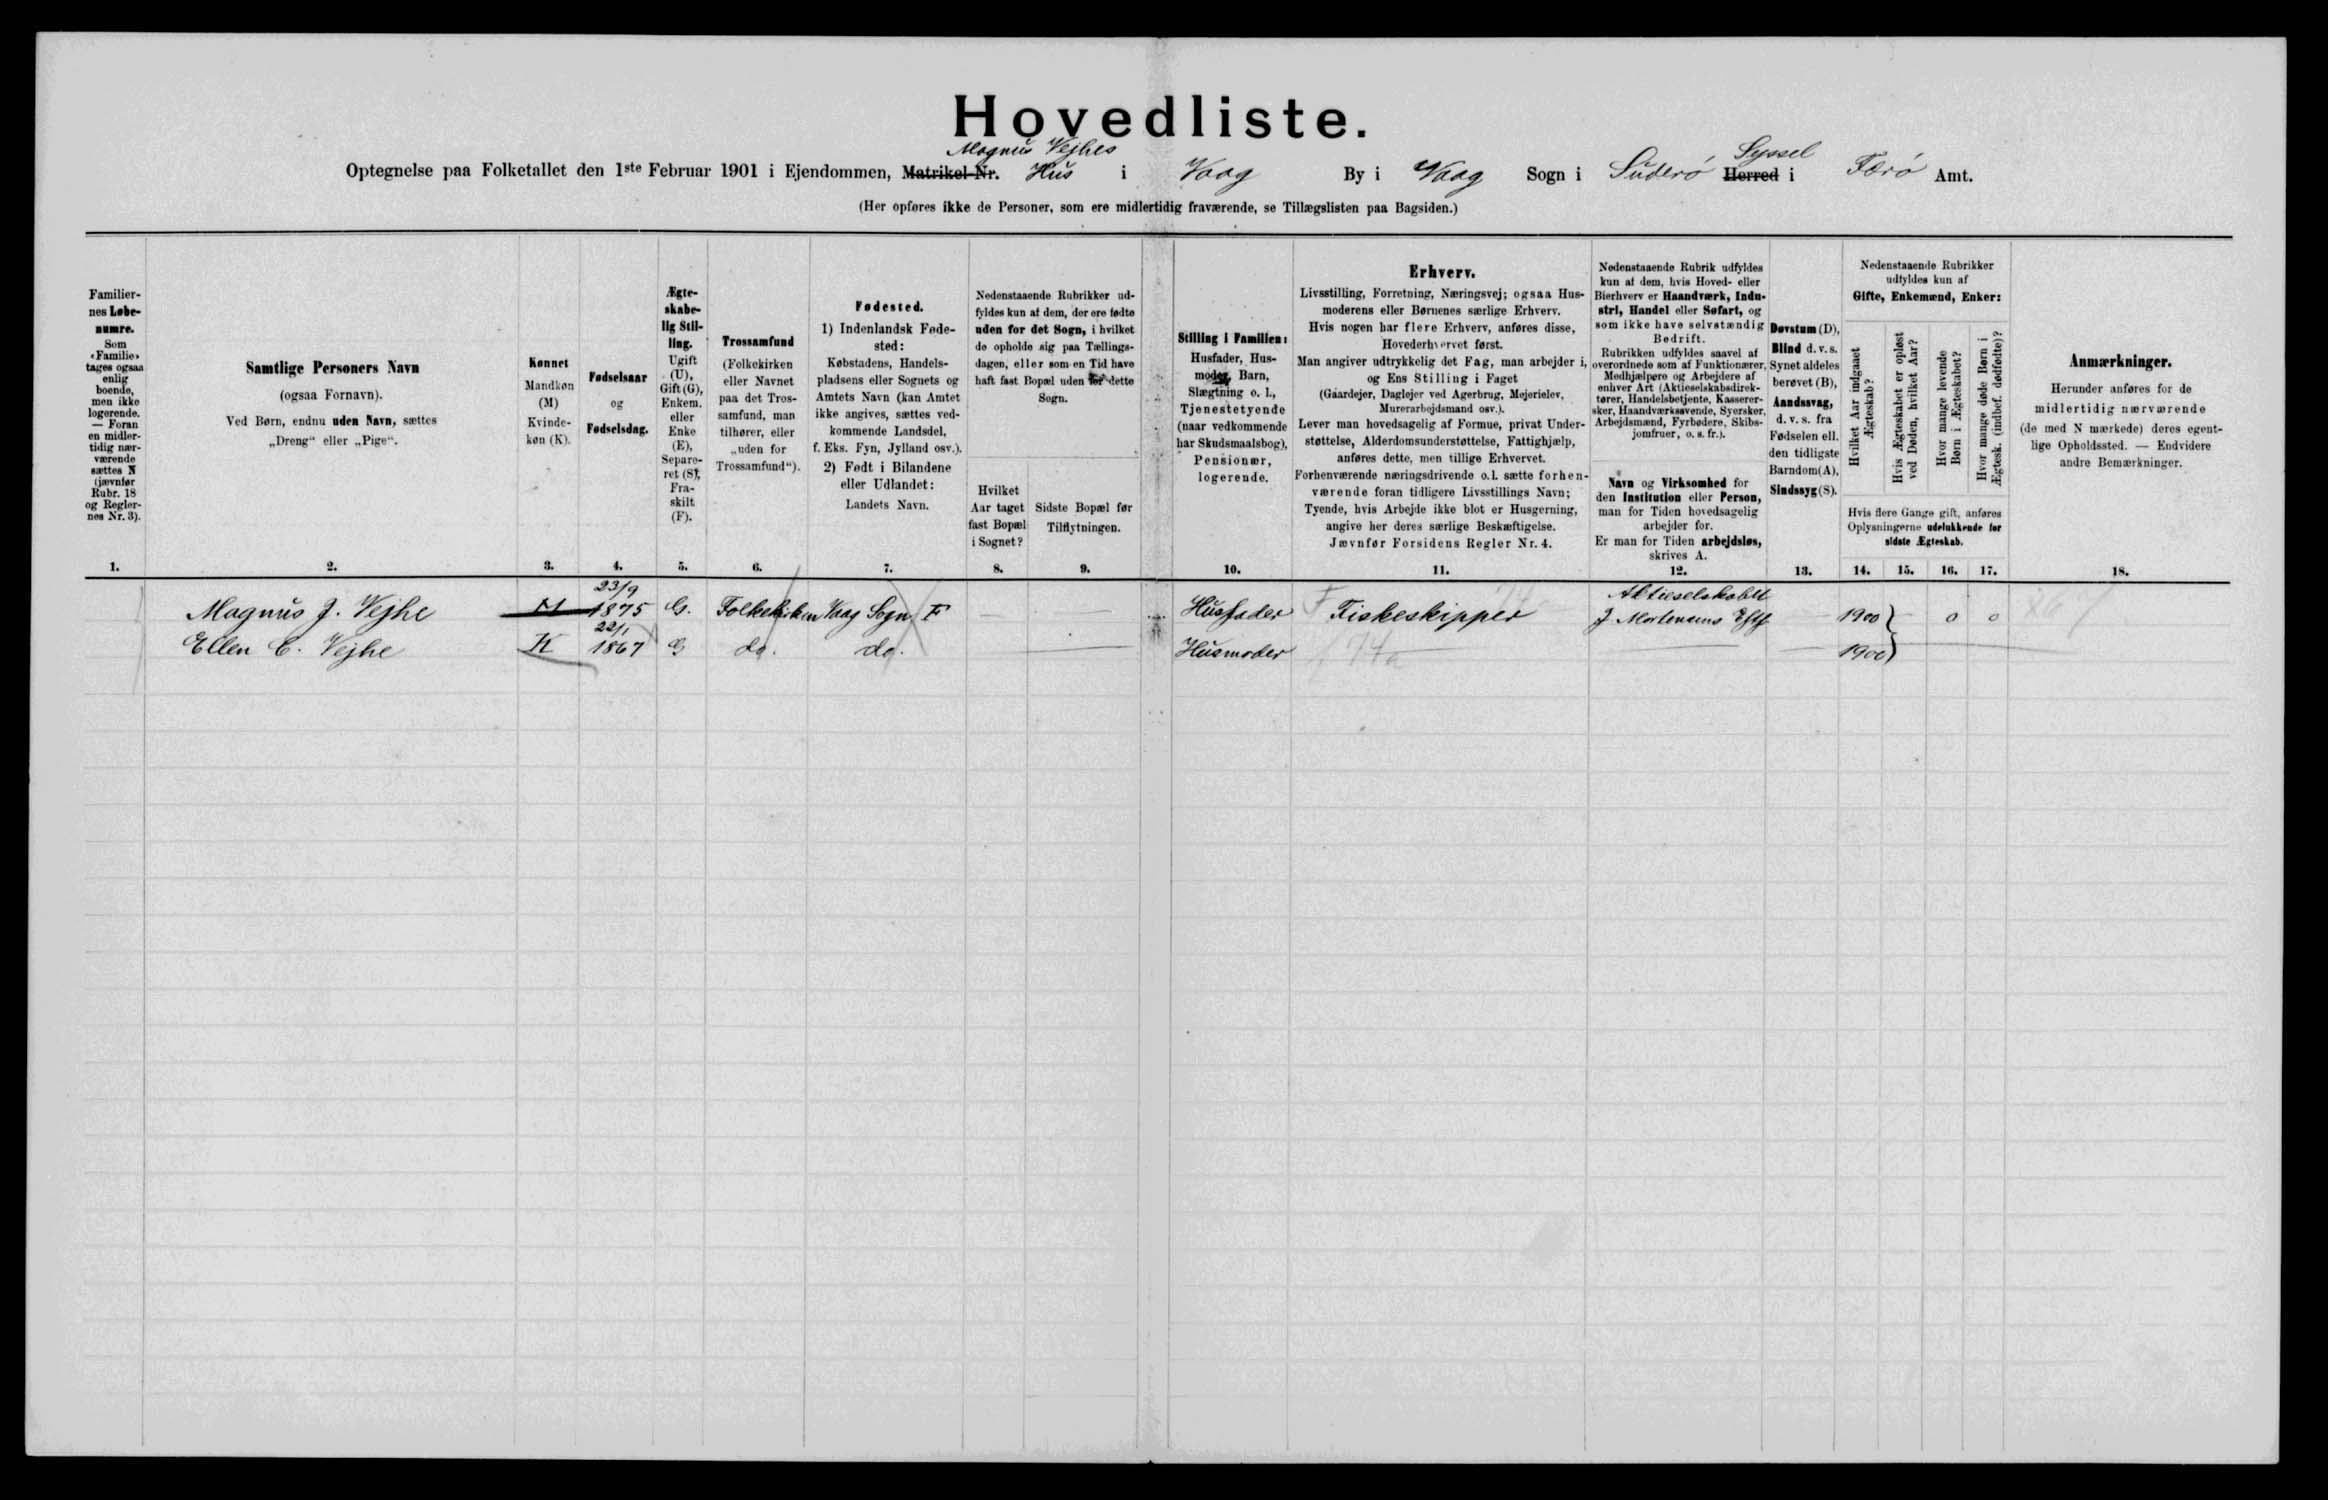 Hovedliste.
Magnus Vejhes Syssel
Optegnelse paa Folketallet den 1ste Februar 1901 i Ejendommen, Matrikel-Nr. Hus i Vaag By i Vaag Sogn i Suderó Herred i Færó Amt.
(Her opføres ikke de Personer, som ere midlertidig fraværende, se Tillægslisten paa Bagsiden.)
Familier-
nes Løbe-
numre.
Som
«Familie»
tages ogsaa
enlig
boende,
men ikke
logerende.
— Foran
en midler-
tidig nær-
værende
sættes N
(jævnfør
Rubr. 18
og Regler-
nes Nr. 3).
1.
Samtlige Personers Navn
(ogsaa Fornavn).
Ved Børn, endnu uden Navn, sættes
„Dreng“ eller „Pige“.
2.
Kønnet
Mandkøn
(M)
Kvinde-
køn (K).
3.
Fødselsaar
og
Fødselsdag.
4.
Ægte-
skabe-
lig Stil-
ling.
Ugift
(U),
Gift (G),
Enkem.
eller
Enke
(E),
Separe-
ret (S),
Fra-
skilt
(F).
5.
Trossamfund
(Folkekirken
eller Navnet
paa det Tros-
samfund, man
tilhører, eller
„uden for
Trossamfund“).
6.
Fødested.
1) Indenlandsk Føde-
sted:
Købstadens, Handels-
pladsens eller Sognets og
Amtets Navn (kan Amtet
ikke angives, sættes ved-
kommende Landsdel,
f. Eks. Fyn, Jylland osv.).
2) Født i Bilandene
eller Udlandet:
Landets Navn.
7.
Nedenstaaende Rubrikker ud-
fyldes kun af dem, der ere fødte
uden for det Sogn, i hvilket
de opholde sig paa Tællings-
dagen, eller som en Tid have
haft fast Bopæl uden for dette
Sogn.
Hvilket
Aar taget
fast Bopæl
i Sognet?
8.
Sidste Bopæl før
Tilflytningen.
9.
Stilling i Familien:
Husfader, Hus-
moder, Barn,
Slægtning o. l.,
Tjenestetyende
(naar vedkommende
har Skudsmaalsbog),
Pensionær,
logerende.
10.
Erhverv.
Livsstilling, Forretning, Næringsvej; ogsaa Hus-
moderens eller Børnenes særlige Erhverv.
Hvis nogen har flere Erhverv, anføres disse,
Hovederhvervet først.
Man angiver udtrykkelig det Fag, man arbejder i,
og Ens Stilling i Faget
(Gaardejer, Daglejer ved Agerbrug, Mejerielev,
Murerarbejdsmand osv.).
Lever man hovedsagelig af Formue, privat Under-
støttelse, Alderdomsunderstøttelse, Fattighjælp,
anføres dette, men tillige Erhvervet.
Forhenværende næringsdrivende o. l. sætte forhen-
værende foran tidligere Livsstillings Navn;
Tyende, hvis Arbejde ikke blot er Husgerning,
angive her deres særlige Beskæftigelse.
Jævnfør Forsidens Regler Nr. 4.
11.
Nedenstaaende Rubrik udfyldes
kun af dem, hvis Hoved- eller
Bierhverv er Haandværk, Indu-
stri, Handel eller Søfart, og
som ikke have selvstændig
Bedrift.
Rubrikken udfyldes saavel af
overordnede som af Funktionærer,
Medhjælpere og Arbejdere af
enhver Art (Aktieselskabsdirek-
tører, Handelsbetjente, Kasserer-
sker, Haandværkssvende, Syersker,
Arbejdsmænd, Fyrbødere, Skibs-
jomfruer, o. s. fr.).
Navn og Virksomhed for
den Institution eller Person,
man for Tiden hovedsagelig
arbejder for.
Er man for Tiden arbejdsløs,
skrives A.
12.
Døvstum (D),
Blind d. v. s.
Synet aldeles
berøvet (B),
Aandssvag,
d. v. s. fra
Fødselen ell.
den tidligste
Barndom (A),
Sindssyg (S).
13.
Nedenstaaende Rubrikker
udfyldes kun af
Gifte, Enkemænd, Enker:
Hvilket Aar indgaaet
Ægteskab?
Hvis Ægteskabet er opløst
ved Døden, hvilket Aar?
Hvor mange levende
Børn i Ægteskabet?
Hvor mange døde Børn i
Ægtesk. (indbef. dødfødte)?
Hvis flere Gange gift, anføres
Oplysningerne udelukkende for
sidste Ægteskab.
14. 15. 16. 17.
Anmærkninger.
Herunder anføres for de
midlertidig nærværende
(de med N mærkede) deres egent-
lige Opholdssted. — Endvidere
andre Bemærkninger.
18.
23/9 Aktieselskabet
Magnus J. Vejhe M 1875 G. Folkekirken Vaag Sogn F — — Husfader Fiskeskipper J Mortensens Eftf — 1900 — 0 0
22/1
Ellen C. Vejhe K 1867 G do. do. — Husmoder 74a — — 1900 —